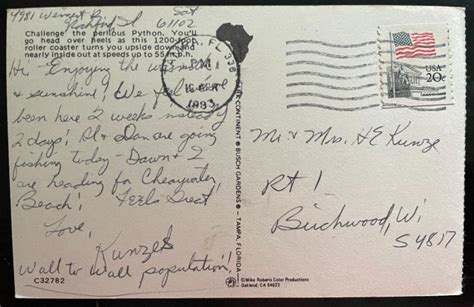 4981 Sat
Rockford, Il 61102
Challenge the perilous Python. You'll
go head over heels as this 1200-foot
roller coaster turns you upside down and
nearly inside out at speeds up to 55 m.p.h.
Hi - Enjoying the warmth
& sunshine! We feel we've
been here 2 weeks instead
2 days! Al & Dan are going
fishing today - Dawn & I
are heading for Clearwater
Beach! Feels Great
Love,
Kunzes
Wall to wall population!
C32782
TAMPA, FL 336
PM
1983
THE DARK CONTINENT • BUSCH GARDENS • TAMPA, FLORIDA
©Mike Roberts Color Productions
Oakland, CA 94623
USA
20c
Mr & Mrs. H E Kunze
RT 1
Birchwood, Wi
54817